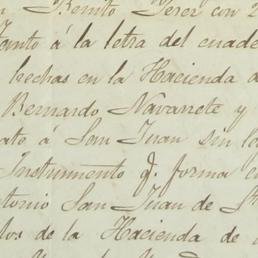 Benito Perez con 2
Tanto á la letra del cuade
hechas en la Hacienda d
Bernardo Navarrete y
ato á San Juan sin lo
Instrumento q. forma e
tonio San Juan de
los de la Hacienda de